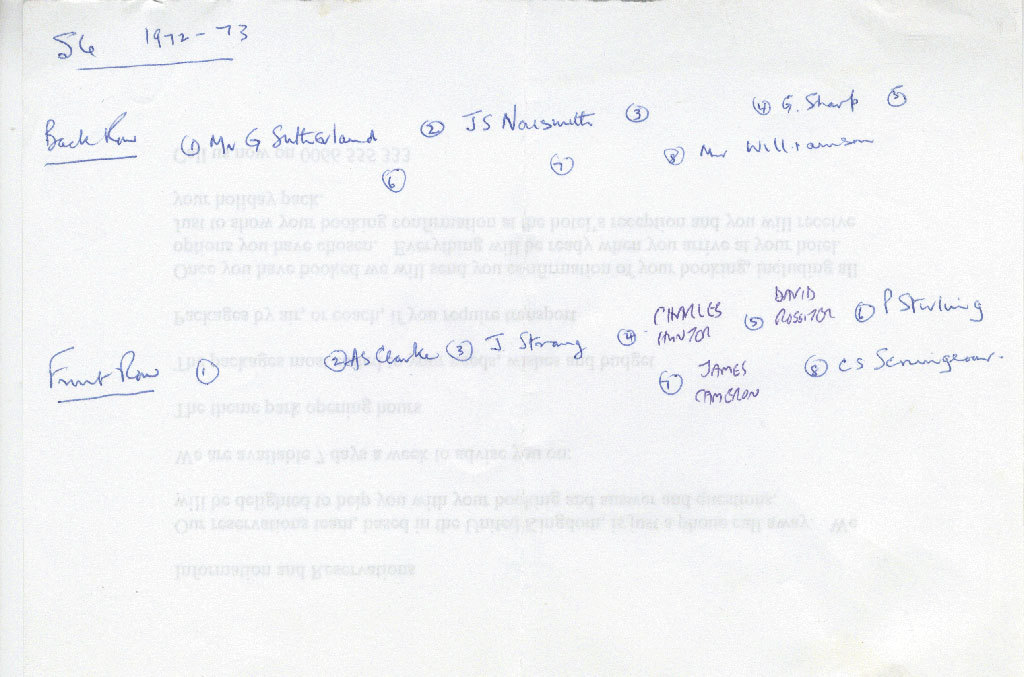 S6 1972-73
Back Row ① Mr G Sutherland ② JS Naismith ③ ④ G. Sharp ⑤
⑥ ⑦ ⑧ Mr Williamson
Front Row ① ② AS Clarke ③ J Strang ④ CHARLES HUNTOR ⑤ DAVID ROSSITOR ⑥ P Stirling
⑦ JAMES CAMERON ⑧ CS Scrimgeour.
Call us now on 0066 555 333
your holiday pack
Just to show your booking confirmation at the hotel's reception and you will receive
options you have chosen. Everything will be ready when you arrive at your hotel
Once you have booked we will send you confirmation of your booking, including all
Packages by air, or coach, if you require transport
The packages wishes and budget
The theme park opening hours
We are available 7 days a week to advise you on:
will be delighted to help you with your booking and answer and questions.
Our reservations team, based in the United Kingdom, is just a phone call away. We
Information and Reservations